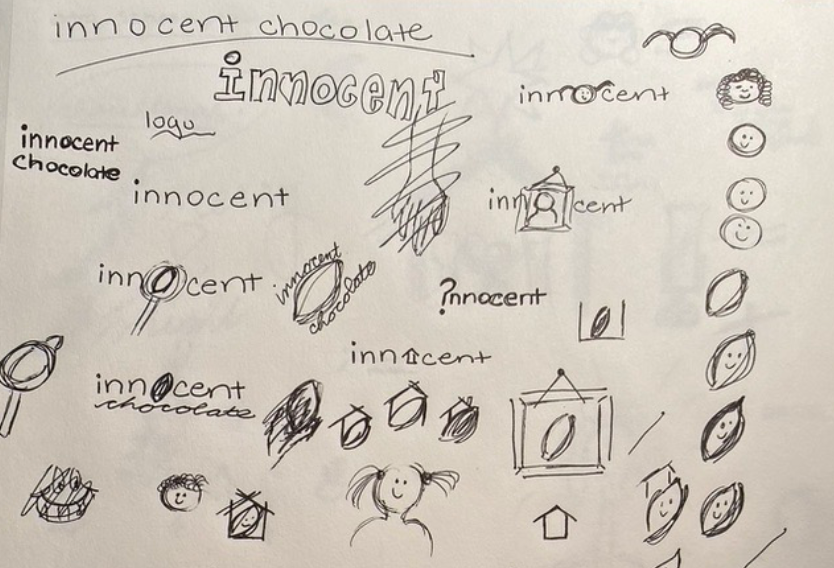 innocent chocolate
innocent
innocent
logo
innocent
chocolate
innocent
inn cent
inn cent
innocent
chocolate
?nnocent
inn cent
innocent
chocolate